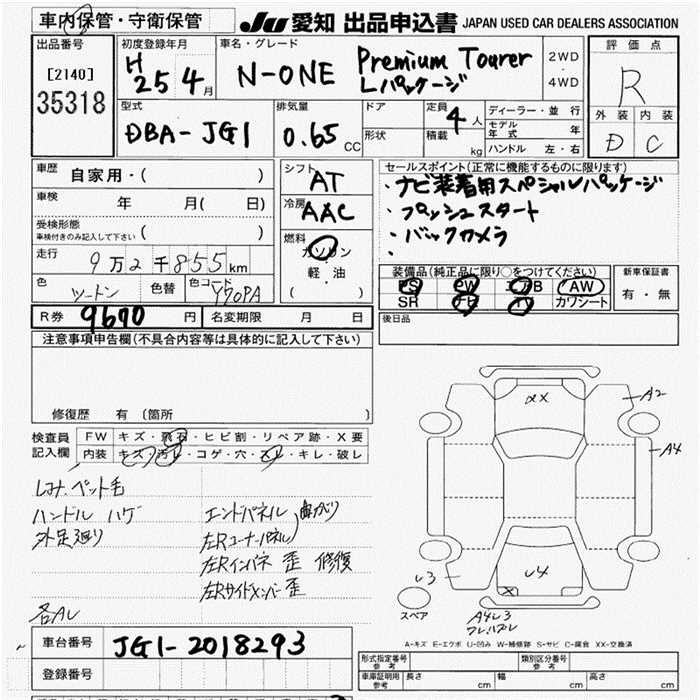 車内保管・守衛保管
JU 愛知 出品申込書 JAPAN USED CAR DEALERS ASSOCIATION
出品番号
[2140]
35318
初度登録年月
H 25 4月
車名・グレード
N-ONE Premium Tourer
Lパッケージ
2WD
・
4WD
評価点
R
外装 内装
D C
型式
DBA-JG1
排気量
0.65 CC
ドア
形状
定員 4人
積載 kg
ディーラー・並行
モデル年式 年
ハンドル 左・右
車歴 自家用・( )
車検 年 月( 日)
受検形態
車検付きのみ記入して下さい ( )
走行 9万2千855km
色 ツートン 色替 色コード YR70PA
シフト AT
冷房 AAC
燃料
ガソリン
軽・油
( )
セールスポイント(正常に機能するものに限ります)
・ナビ装着用スペシャルパッケージ
・プッシュスタート
・バックカメラ
・
装備品(純正品に限り○をつけてください)
PS PW エアB AW
SR ナビ TV カワシート
新車保証書
有・無
R券 9670円 名変期限 月 日
後日品
注意事項申告欄(不具合内容等は具体的に記入して下さい)
修復歴 有(箇所 )
検査員記入欄
FW キズ・飛石・ヒビ割・リペア跡・X要
内装 キズ・汚レ・コゲ・穴・スレ・キレ・破レ
シミ、ペット毛
ハンドル ハゲ
外足廻り
エンドパネル 曲がり
左Rコーナーパネル
左Rインパネ 歪 修復
左Rサイドメンバー歪
各AL
αX
A2
A4
U3
U4
X
A4U3
スペア
A-キズ E-エクボ U-凹み W-補修跡 S-サビ C-腐食 XX-交換済
車台番号 JG1-2018293
登録番号
形式指定番号
参考
類別区分番号
参考
車庫証明用
参考
長さ cm 幅 cm 高さ cm